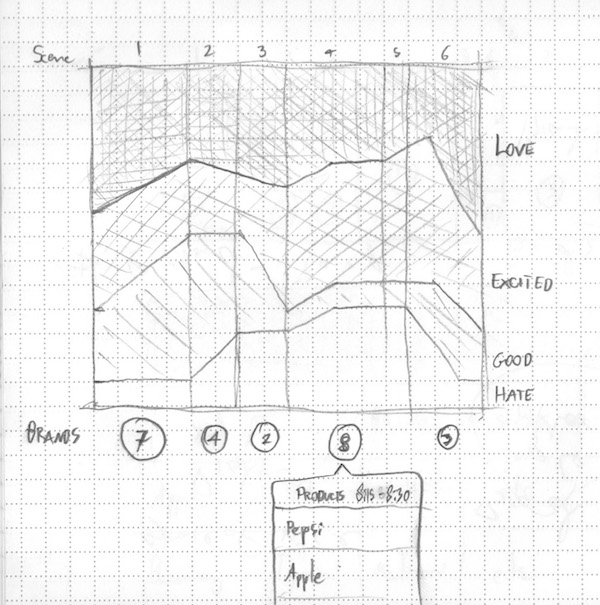 Scene 1 2 3 4 5 6
LOVE
EXCITED
GOOD
HATE
BRANDS 7 4 2 8 3
PRODUCTS 8:15-8:30
Pepsi
Apple